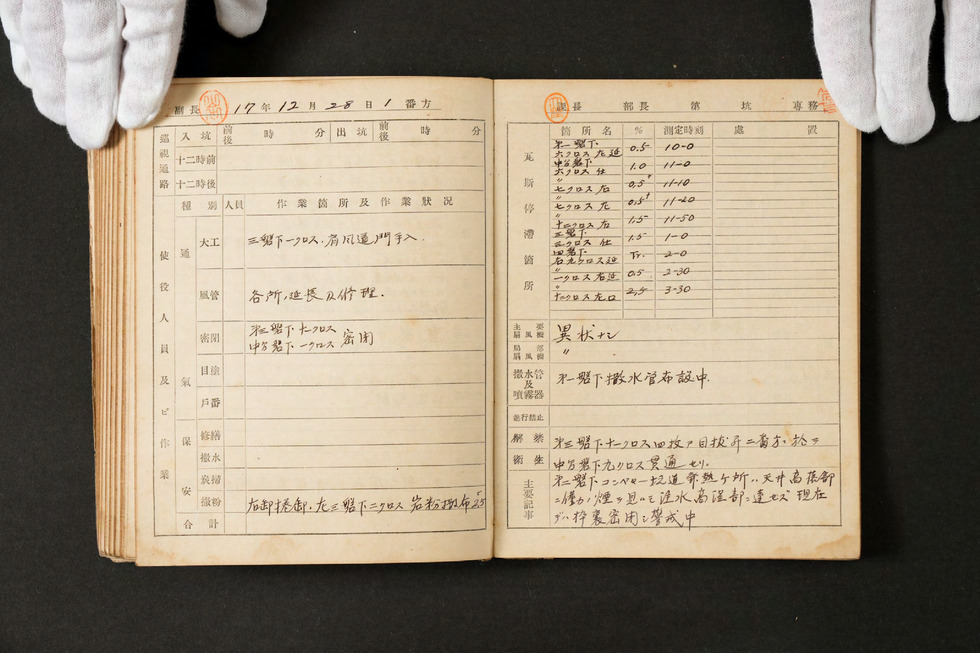 副長 17年12月28日1番方
巡視通路 入坑 前後 時 分 出坑 前後 時 分
十二時前
十二時後
使役人員及ビ作業
種別 人員 作業箇所及作業狀況
通氣
大工 三盤下一クロス、肩風道門手入.
風管 各所ノ延長及修理.
密閉 第三盤下十一クロス
中部盤下一クロス 密閉
目塗
戸番
保安
修繕
撒水
炭掃
撒粉 左卸捲卸、左三盤下ニクロス岩粉撒布
合計
課長 部長 第 坑 専務
瓦斯停滯箇所
箇所名 % 測定時刻 處置
第一盤下
六クロス左延 0.5 10-0
六クロス仕 1.0 11-0
〃
七クロス右 0.5 11-10
〃
七クロス左 0.5 11-20
〃
十二クロス右 1.5 11-50
三盤下
三クロス仕 1.5 1-0
四盤下
右九クロス延 Tr. 2-0
〃
一クロス右延 0.5 2-30
〃
十二クロス左口 2.5 3-30
主要扇風機 異状ナシ
局部扇風機 〃
撒水管及噴霧器 第一盤下撒水管布設中.
進行禁止
解禁 第三盤下十一クロス四枚ノ目抜昇二番方ニ於テ
衛生 中部盤下九クロス貫通セリ.
主要記事 第二盤下コンベヤー坑道発熱ケ所ハ天井高落部
ニ僅カノ煙ヲ見ルモ注水高落部ニ達セズ現在
デハ枠裏密閉シ警戒中